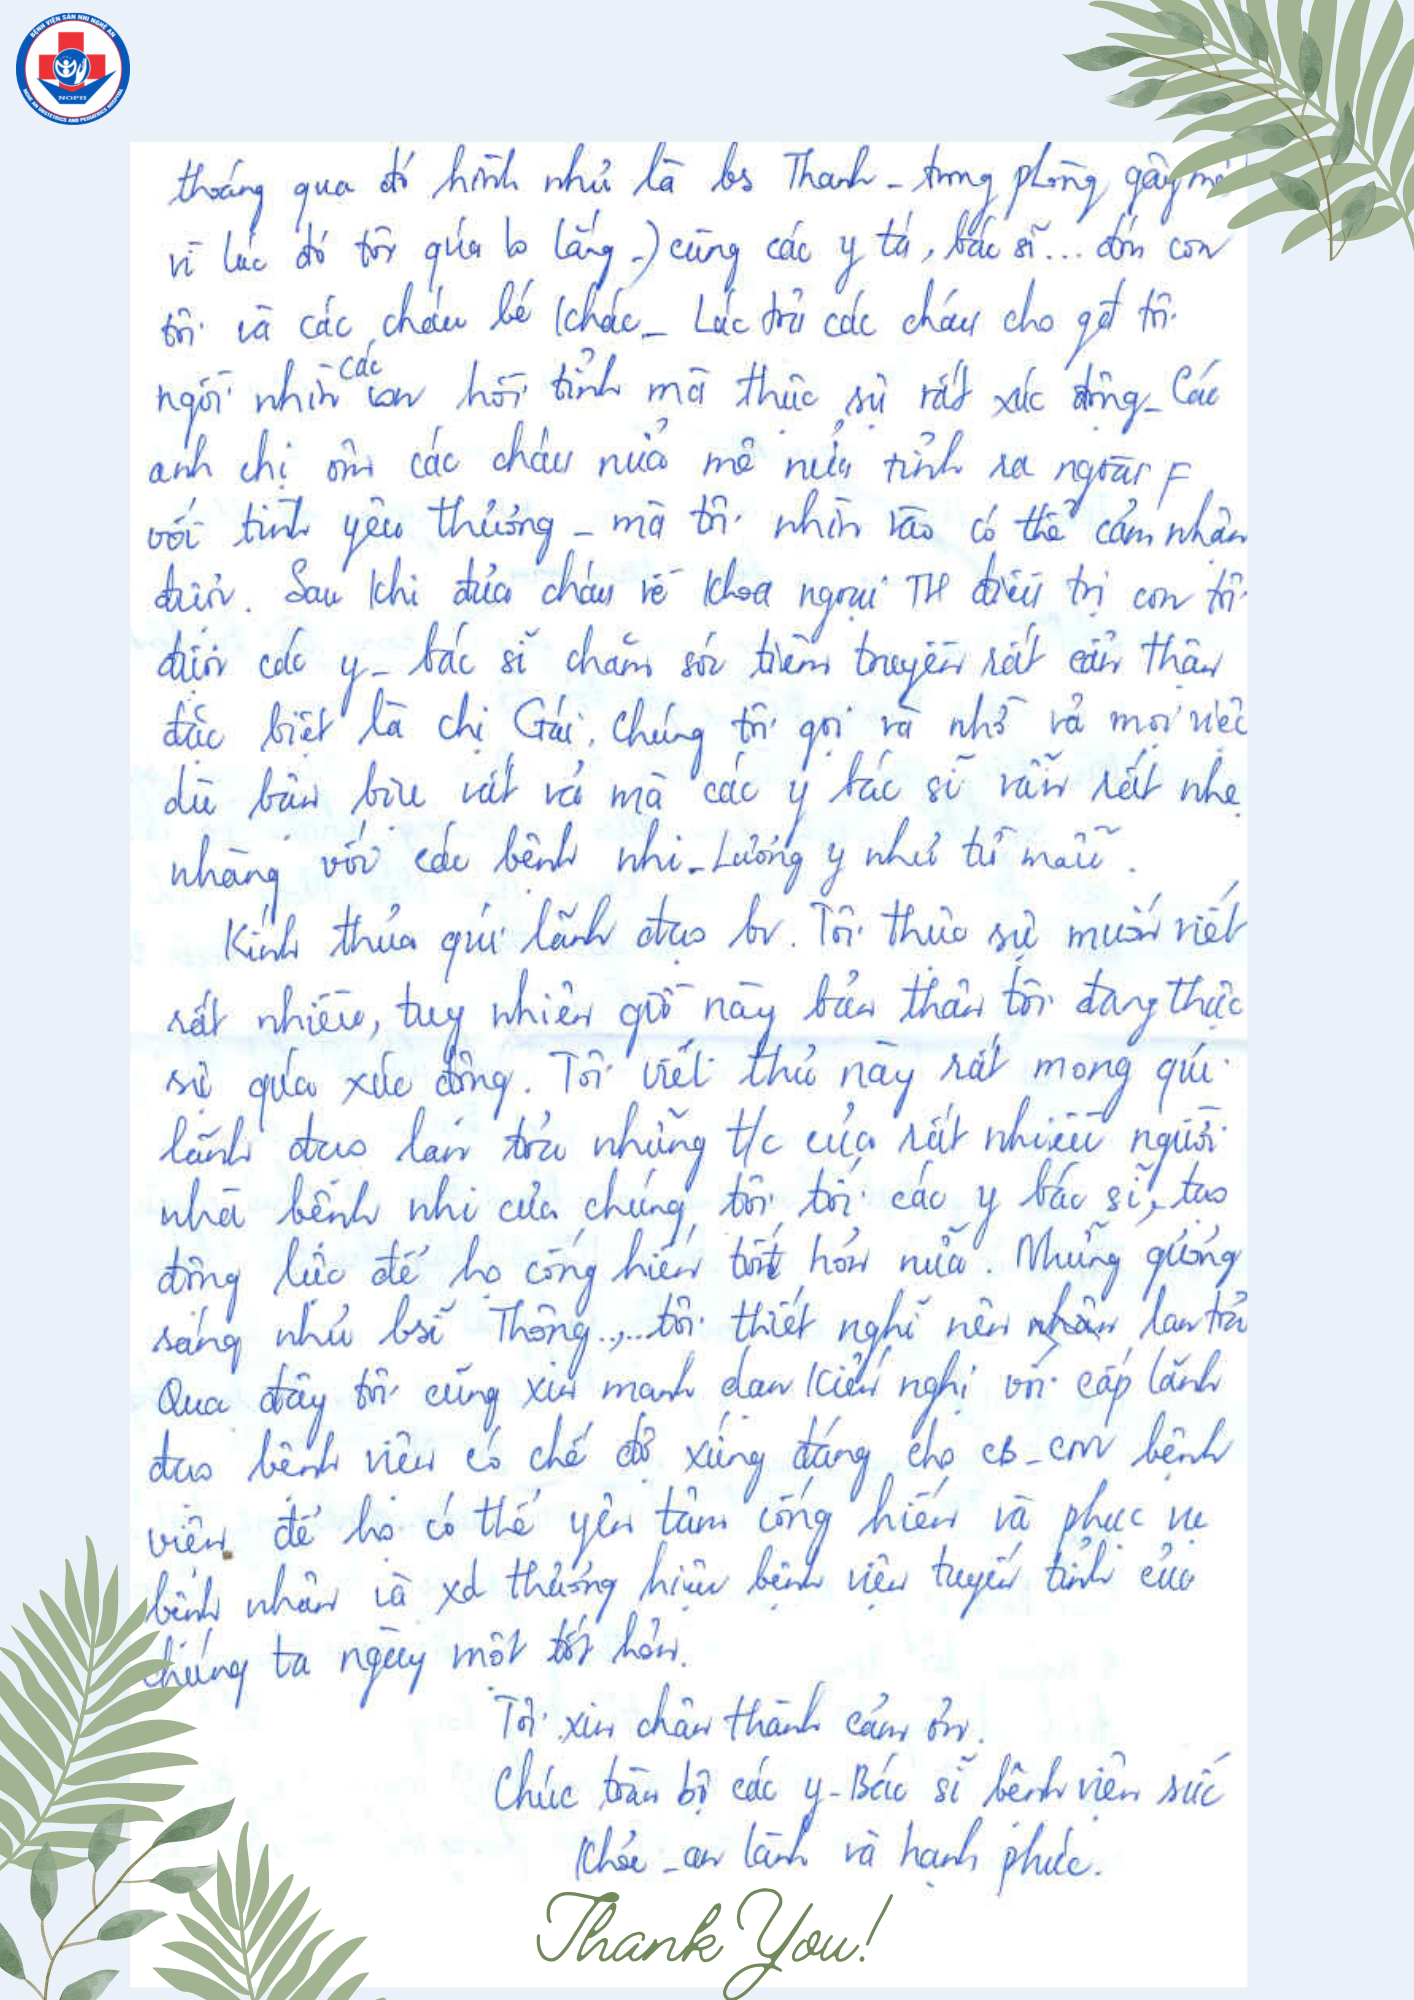 BỆNH VIỆN SẢN NHI NGHỆ AN
NOPH
NGHE AN OBSTETRICS AND PEDIATRICS HOSPITAL
thoáng qua đó hình như là bs Thanh - trong phòng gây mê
vì lúc đó tôi quá lo lắng -) cùng các y tá, bác sĩ... đón con
tôi và các cháu bé khác - Lúc trả các cháu cho gđ tôi
ngồi nhìn các con hồi tỉnh mà thực sự rất xúc động - Các
anh chị ôm các cháu nửa mê nửa tỉnh ra ngoài
với tình yêu thương - mà tôi nhìn vào có thể cảm nhận
được. Sau khi đưa cháu về khoa ngoại TH điều trị con tôi
được các y - bác sĩ chăm sóc tiêm truyền rất cẩn thận
đặc biệt là chị Gái. Chúng tôi gọi và nhờ vả mọi việc
dù bận bịu vất vả mà các y bác sĩ vẫn rất nhẹ
nhàng với các bệnh nhi - Lương y như từ mẫu.
Kính thưa quí lãnh đạo bv. Tôi thực sự muốn viết
rất nhiều, tuy nhiên giờ này bản thân tôi đang thực
sự quá xúc động. Tôi viết thư này rất mong quí
lãnh đạo lan tỏa những t/c của rất nhiều người
nhà bệnh nhi của chúng tôi tới các y bác sĩ, tạo
động lực để họ cống hiến tốt hơn nữa. Những gương
sáng như bsĩ Thông.,... tôi thiết nghĩ nên lan tỏa
Qua đây tôi cũng xin mạnh dạn kiến nghị với cấp lãnh
đạo bệnh viện có chế độ xứng đáng cho cb - cnv bệnh
viện để họ có thể yên tâm cống hiến và phục vụ
bệnh nhân và xd thương hiệu bệnh viện tuyến tỉnh của
chúng ta ngày một tốt hơn.
Tôi xin chân thành cảm ơn.
Chúc toàn bộ các y - Bác sĩ bệnh viện sức
khỏe - an lành và hạnh phúc.
Thank You!